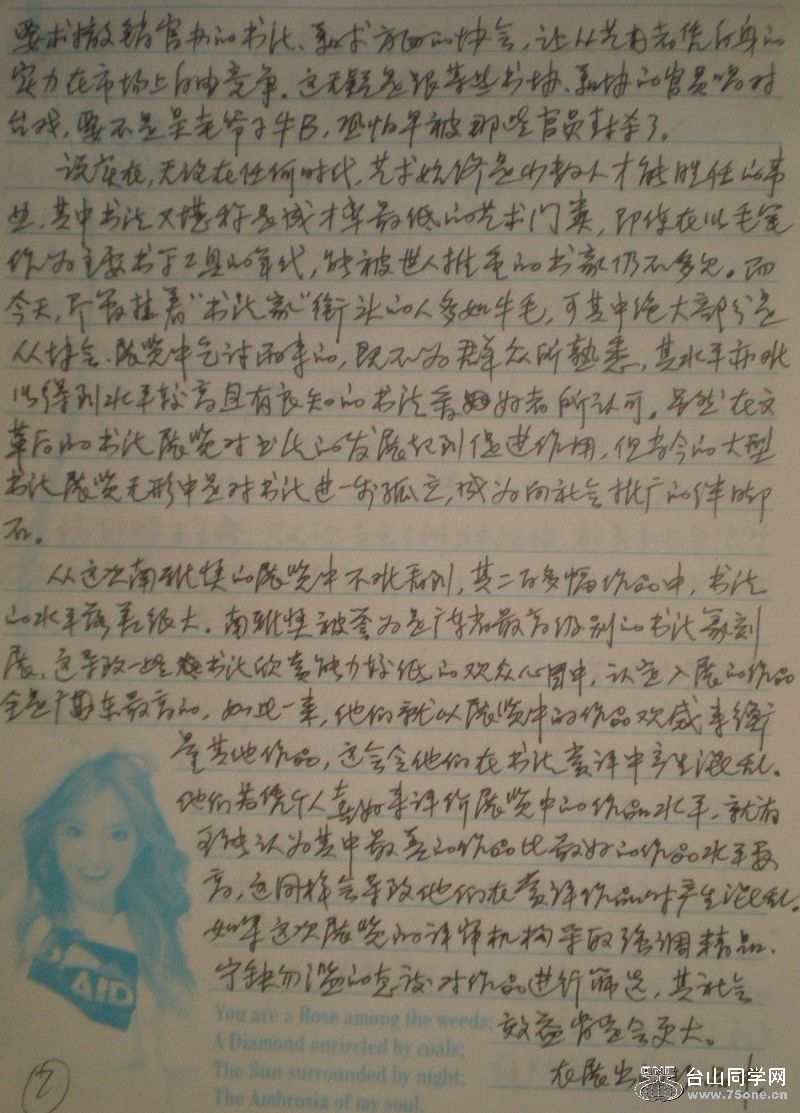 要求撤销官办的书法、美术方面的协会,让从艺者凭自身的
实力在市场上自由竞争。这无疑是跟某些书协、美协的官员唱对
台戏,要不是吴老爷子牛B,恐怕早被那些官员封杀了。
说实在,无论在任何时代,艺术始终是少数人才能胜任的事
业,其中书法又堪称是成才率最低的艺术门类,即使在以毛笔
作为主要书写工具的年代,能被世人推重的书家仍不多见。而
今天,尽管挂着“书法家”衔头的人多如牛毛,可其中绝大部分是
从协会、展览中乞讨而来的,既不为群众所熟悉,其水平亦难
以得到水平较高且有良知的书法爱好者所认可。虽然在文
革后的书法展览对书法的发展起到促进作用,但当今的大型
书法展览无形中是对书法进一步孤立,成为向社会推广的绊脚
石。
从这次南雅奖的展览中不难看到,其二百多幅作品中,书法
的水平落差很大。南雅奖被誉为是广东省最高级别的书法篆刻
展,这导致一些书法欣赏能力较低的观众心目中,认定入展的作品
全是广东最高的,如此一来,他们就以展览中的作品权威来衡
量其他作品,这会令他们在书法赏评中产生混乱。
他们若凭个人喜好来评价展览中的作品水平,就有
可能认为其中最差的作品比最好的作品水平要
高,这同样会导致他们在赏评作品时产生混乱。
如果这次展览的评审机构采取强调精品、
宁缺勿滥的态度对作品进行筛选,其社会
效益肯定会更大。
在展出
AID
You are a Rose among the weeds;
A Diamond encircled by coals;
The Sun surrounded by night;
The Ambrosia of my soul
2
台山同学网
www.75one.cn